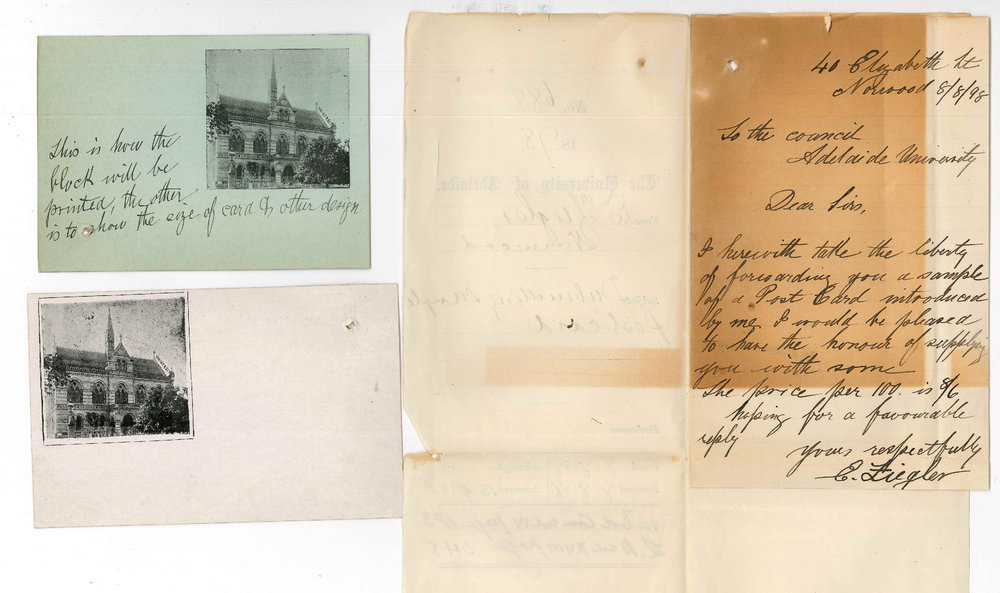 This is how the
block will be
printed, the other
is to show the size of card & other design
No. 688
1898
The University of Adelaide.
Ziegler,
Norwood
Submitting Sample
postcard
Enclosures
40 Elizabeth St
Norwood 8/8/98
To the council
Adelaide University
Dear Sirs,
I herewith take the liberty
of forwarding you a sample
of a Post Card introduced
by me. I would be pleased
to have the honour of supplying
you with some
The price per 100. is 8/6
hoping for a favourable
reply
yours respectfully
E. Ziegler